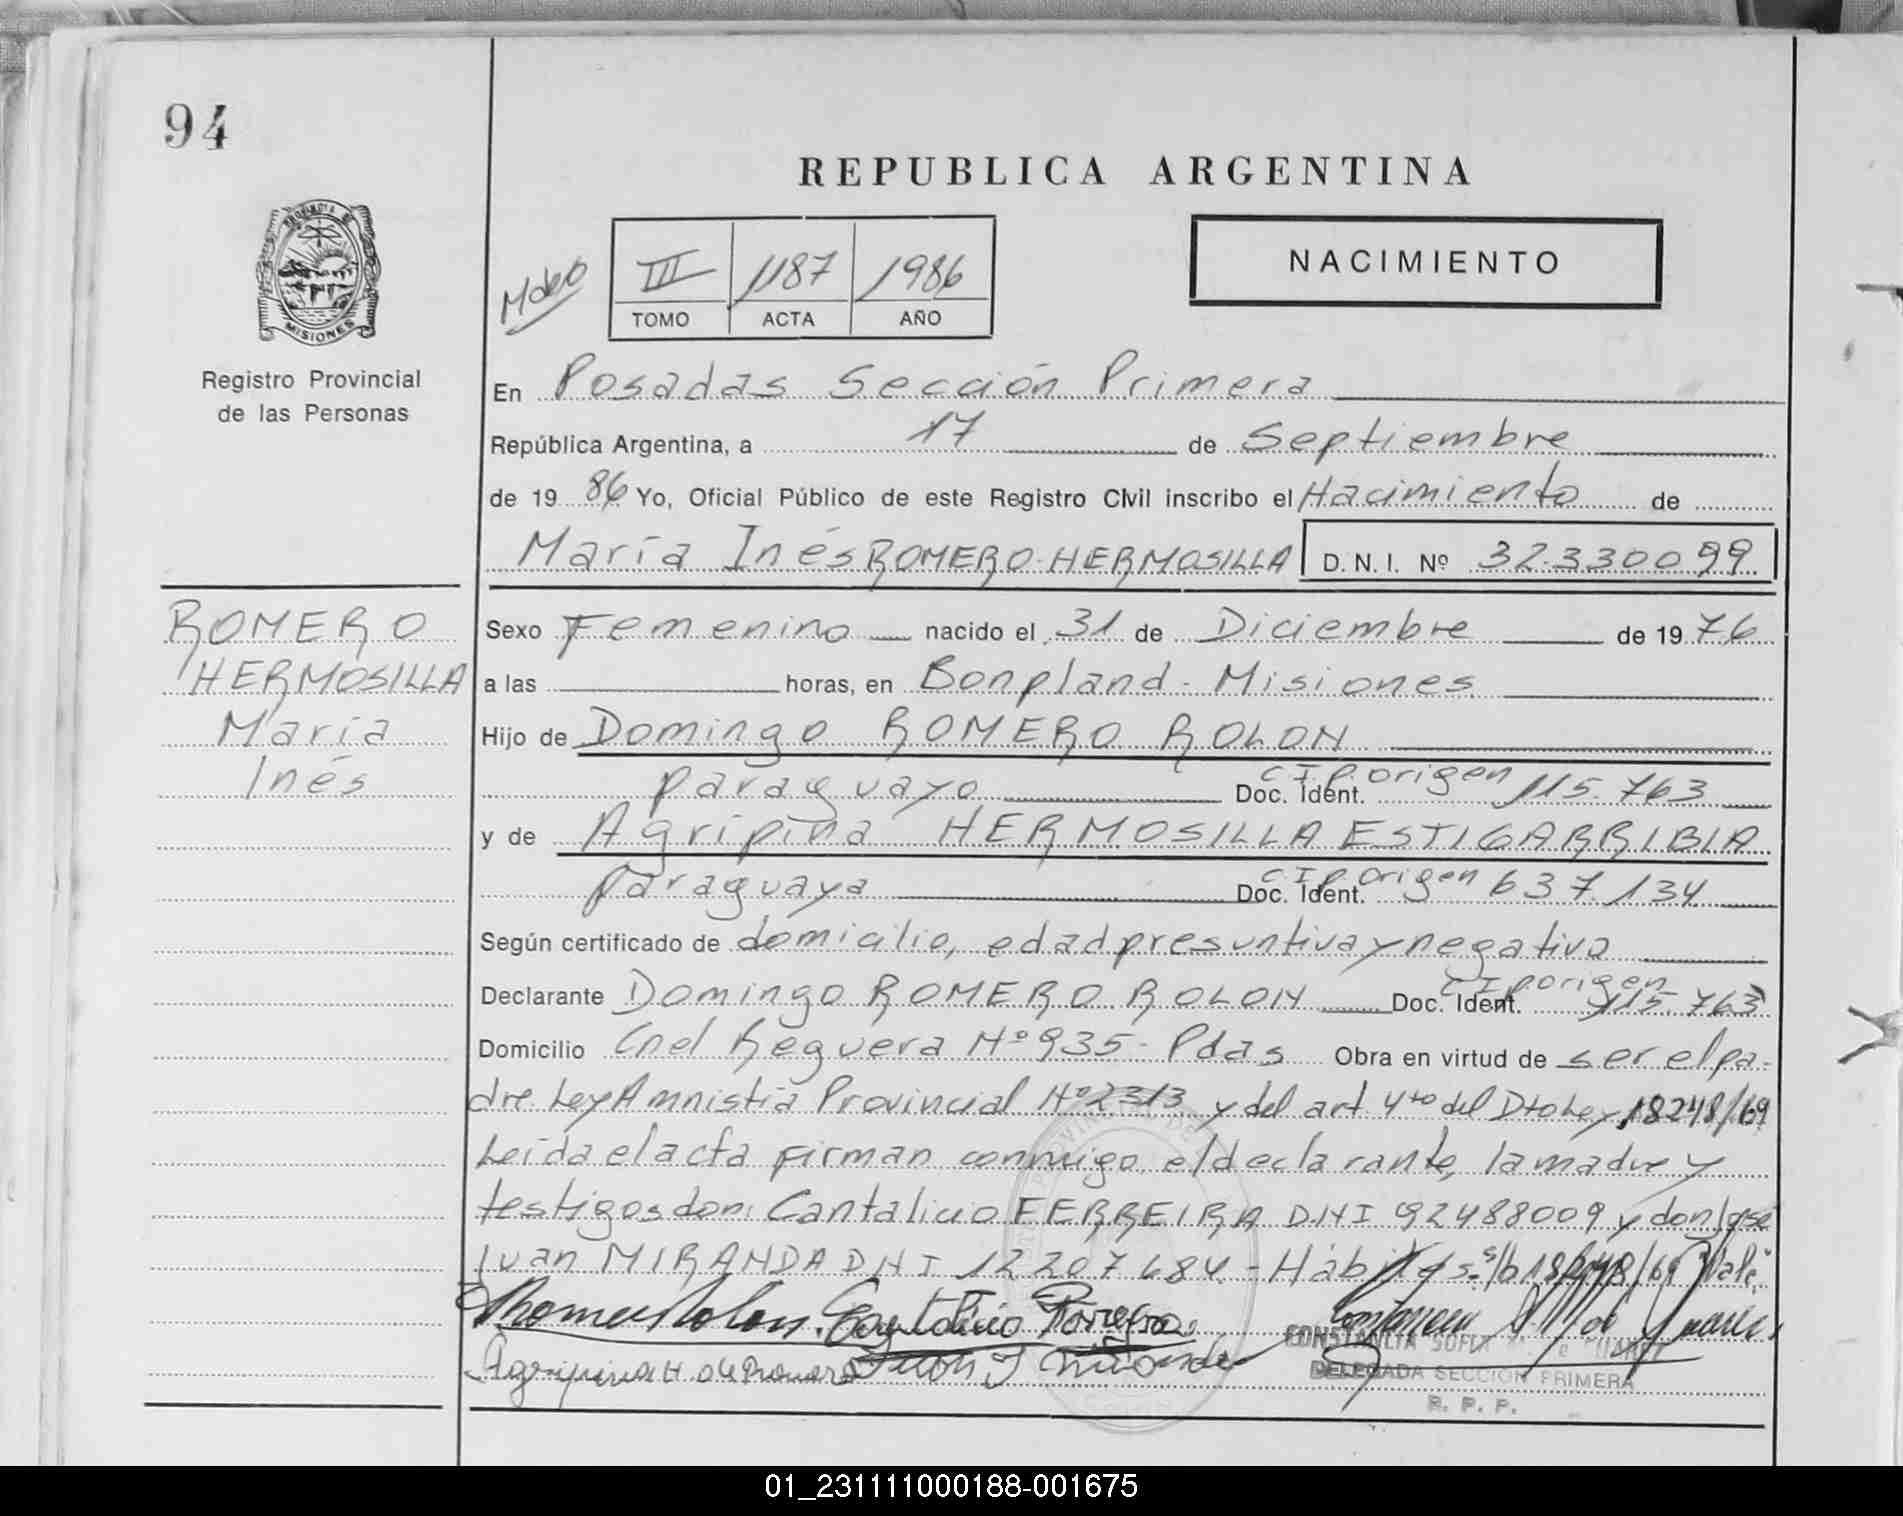 94
REPUBLICA ARGENTINA
PROVINCIA DE
MISIONES
Registro Provincial
de las Personas
III 1187 1986
TOMO ACTA AÑO
NACIMIENTO
En Posadas Sección Primera
República Argentina, a 17 de Septiembre
de 19 86 Yo, Oficial Público de este Registro Civil inscribo el Nacimiento de
María Inés ROMERO HERMOSILLA D.N.I. Nº 32.330099
ROMERO
HERMOSILLA
María
Inés
Sexo Femenino nacido el 31 de Diciembre de 19 76
a las horas, en Bonpland - Misiones
Hijo de Domingo ROMERO ROLON
paraguayo Doc. Ident. C I p. origen 115.763
y de Agripina HERMOSILLA ESTIGARRIBIA
paraguaya Doc. Ident. C I p. origen 637.134
Según certificado de domicilio, edad presuntiva y negativa
Declarante Domingo ROMERO ROLON Doc. Ident. C I p origen 115.763
Domicilio Cnel Reguera Nº 935 - Pdas Obra en virtud de ser el pa-
dre Ley Amnistia Provincial Nº 2313 y del art 4to del Dto Ley 18248/69
Leída el acta firman conmigo el declarante, la madre y
testigos don: Cantalicio FERREIRA DNI 92488009 y don José
Juan MIRANDA DNI 12 207 684 - Hábiles. s/b 18248/69 Vale
Romero Rolon Cantalicio Ferreira
Agripina H de Romero Juan J Miranda
CONSTANCIA SOFIA
DELEGADA SECCION PRIMERA
R. P. P.
01_231111000188-001675